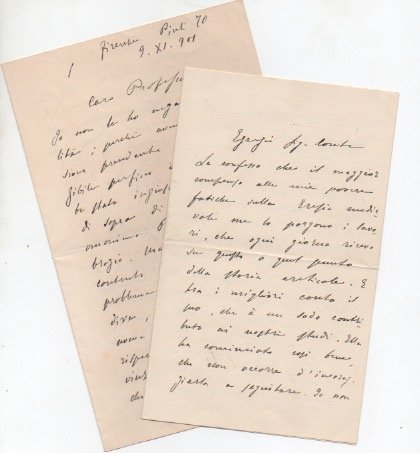 Firenze Pinti 70
9. XI. 901
Caro Professore
Io non le ho nega
di sopra di
omonimo
brogio. Ma
contento
problema
dire,
aveva
rispe
Egregio Sig. Conte
Le confesso che il maggior
compenso alle mie povere
fatiche sulla Eresia medie
vale me lo porgono i lavo
ri, che ogni giorno ricevo
su questo o quel punto
della storia ereticale. E
tra i migliori conto il
suo, che è un sodo contri
buto ai nostri studi. Ella
ha cominciato così bene
che non occorre d'incorag
giarla a seguitare. Io non